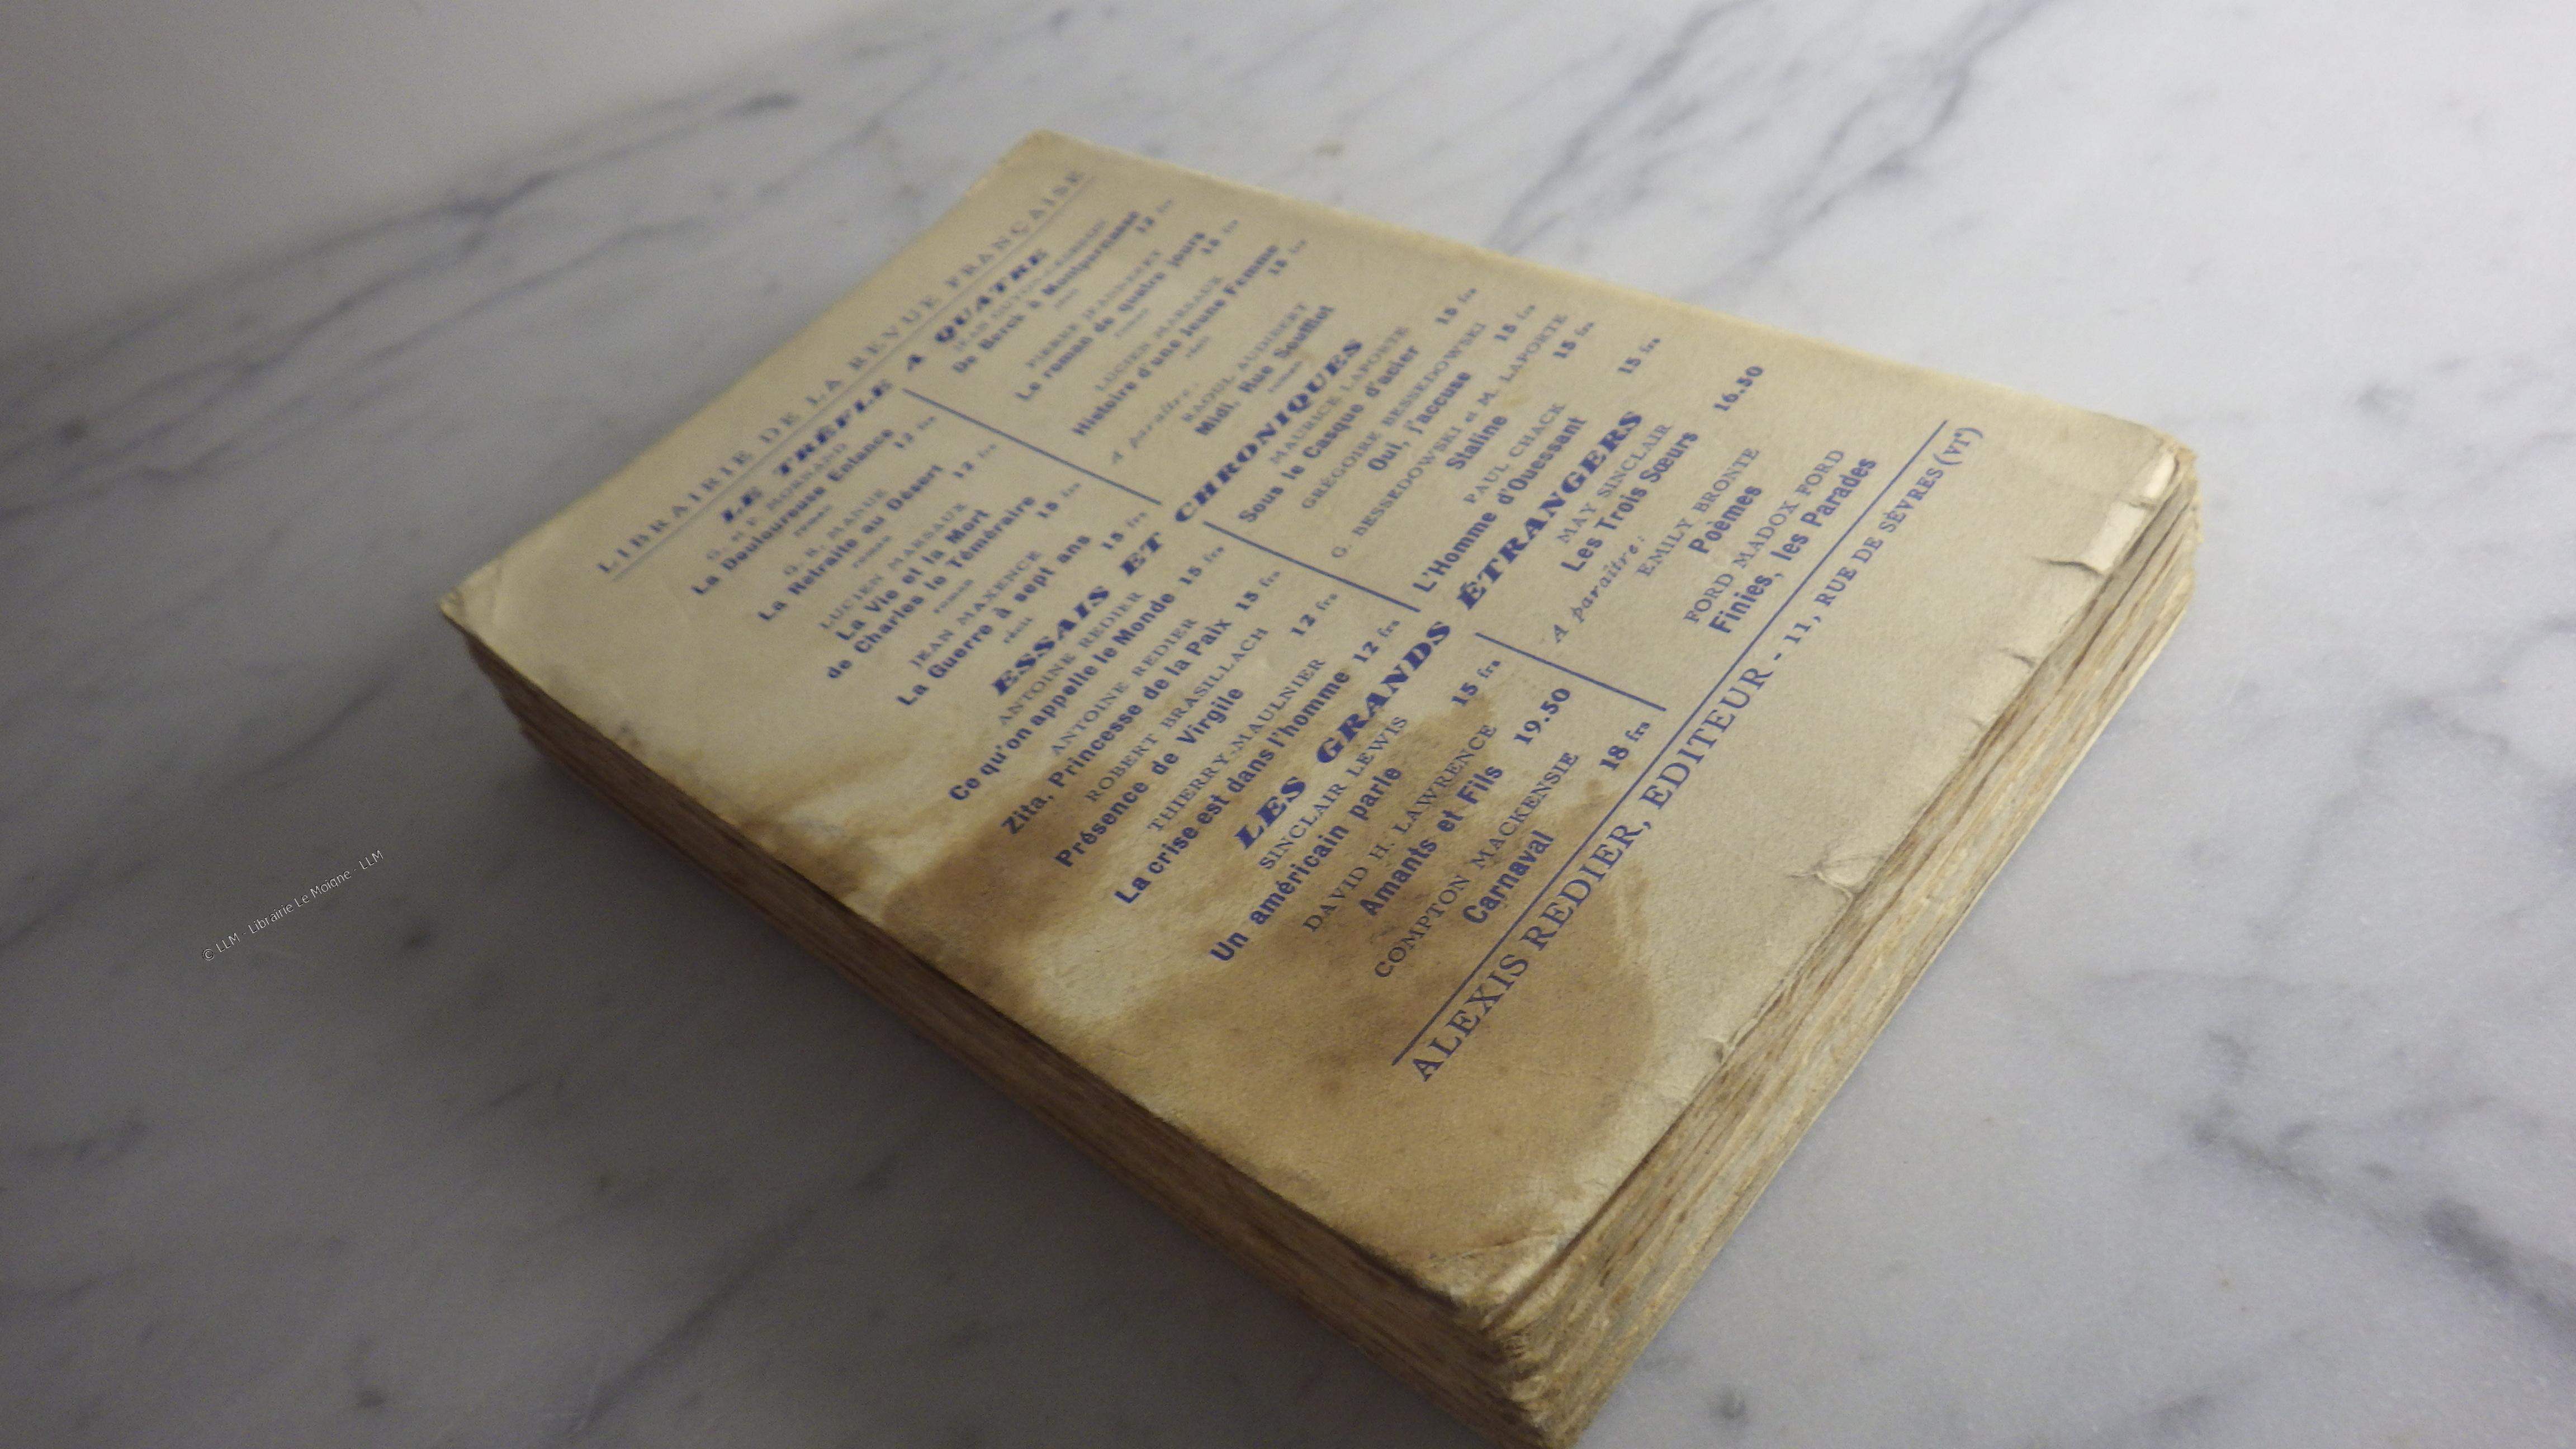 LIBRAIRIE DE LA REVUE FRANÇAISE
LE TRÈFLE A QUATRE
G. et P. BORMAND
La Douloureuse Enfance
roman 12 frs
G. R. MANUE
La Retraite au Désert
roman 12 frs
LUCIEN MARSAUX
La Vie et la Mort
de Charles le Téméraire
roman 15 frs
JEAN MAXENCE
La Guerre à sept ans
récit 15 frs
De Berck à Montparnasse
12 frs
PIERRE JEANNERET
Le roman de quatre jours
roman 15 frs
LUCIEN MARSAUX
Histoire d'une jeune Femme
récit 15 frs
A paraître :
RAOUL AUDIBERT
Midi, Rue Soufflot
roman
ESSAIS ET CHRONIQUES
ANTOINE REDIER
Ce qu'on appelle le Monde 15 frs
ANTOINE REDIER
Zita, Princesse de la Paix 15 frs
ROBERT BRASILLACH
Présence de Virgile 12 frs
THIERRY-MAULNIER
La crise est dans l'homme 12 frs
MAURICE LAPORTE
Sous le Casque d'acier 15 frs
GRÉGOIRE BESSEDOWSKI
Oui, j'accuse 15 frs
G. BESSEDOWSKI et M. LAPORTE
Staline 15 frs
PAUL CHACK
L'Homme d'Ouessant 15 frs
LES GRANDS ÉTRANGERS
SINCLAIR LEWIS
Un américain parle 15 frs
DAVID H. LAWRENCE
Amants et Fils 19.50
COMPTON MACKENSIE
Carnaval 18 frs
MAY SINCLAIR
Les Trois Sœurs 16.50
A paraître :
EMILY BRONTE
Poèmes
FORD MADOX FORD
Finies, les Parades
ALEXIS REDIER, EDITEUR - 11, RUE DE SÈVRES (VIᵉ)
© LLM - Librairie Le Moigne - LLM